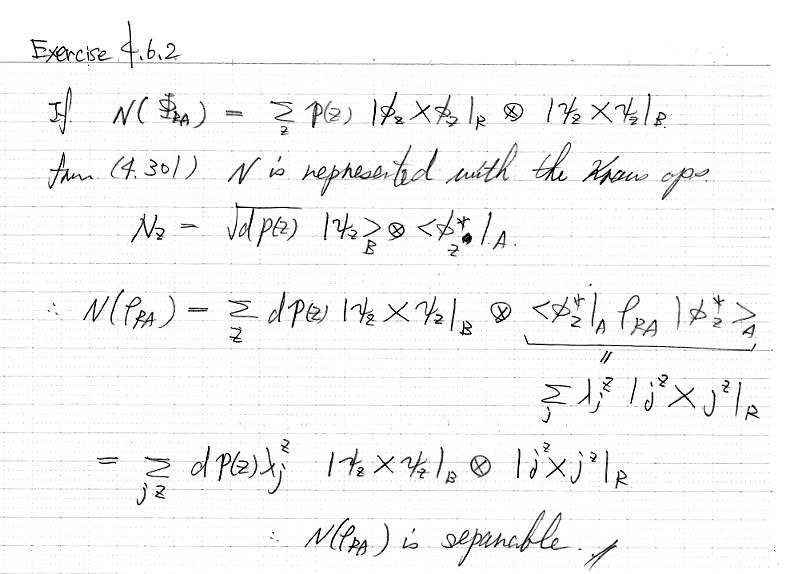 Exercise 4.6.2
If N(Φ_RA) = Σ_z p(z) |φ_z><φ_z|_R ⊗ |ψ_z><ψ_z|_B
from (4.301) N is represented with the Kraus ops.
N_z = √(d p(z)) |ψ_z>_B ⊗ <φ_z^*|_A.
∴ N(ρ_RA) = Σ_z d p(z) |ψ_z><ψ_z|_B ⊗ <φ_z^*|_A ρ_RA |φ_z^*>_A
=
Σ_j λ_j^z |j^z><j^z|_R
= Σ_jz d p(z) λ_j^z |ψ_z><ψ_z|_B ⊗ |j^z><j^z|_R
∴ N(ρ_RA) is separable.